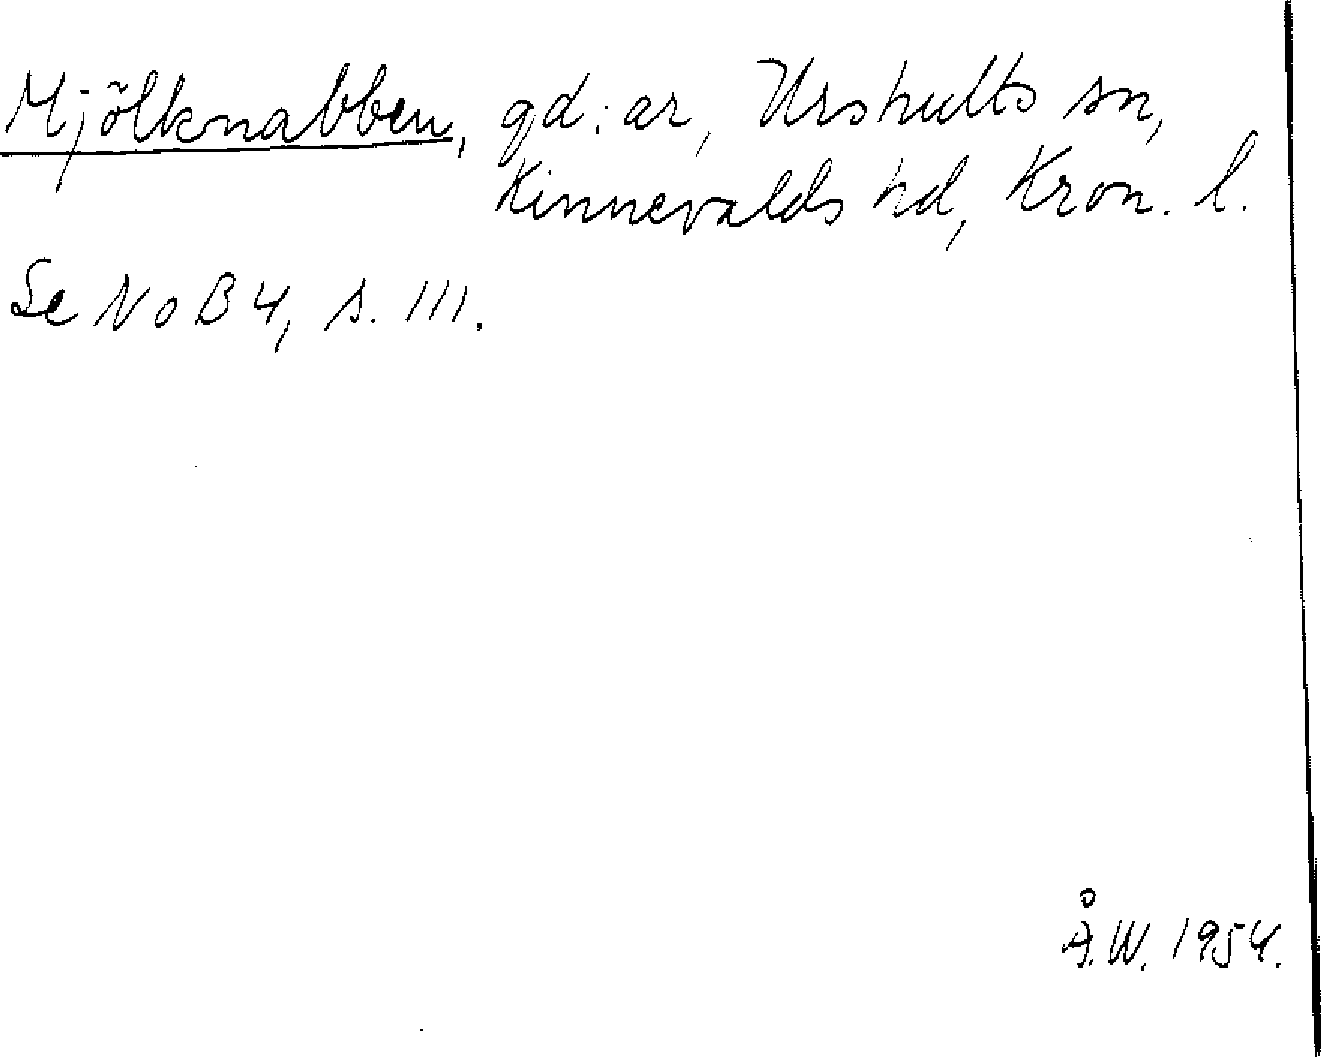 Mjölknabben, gd:ar, Urshults sn,
Kinnevalds hd, Kron. l.
Se NoB 4, s. 111.
Å.W. 1954.